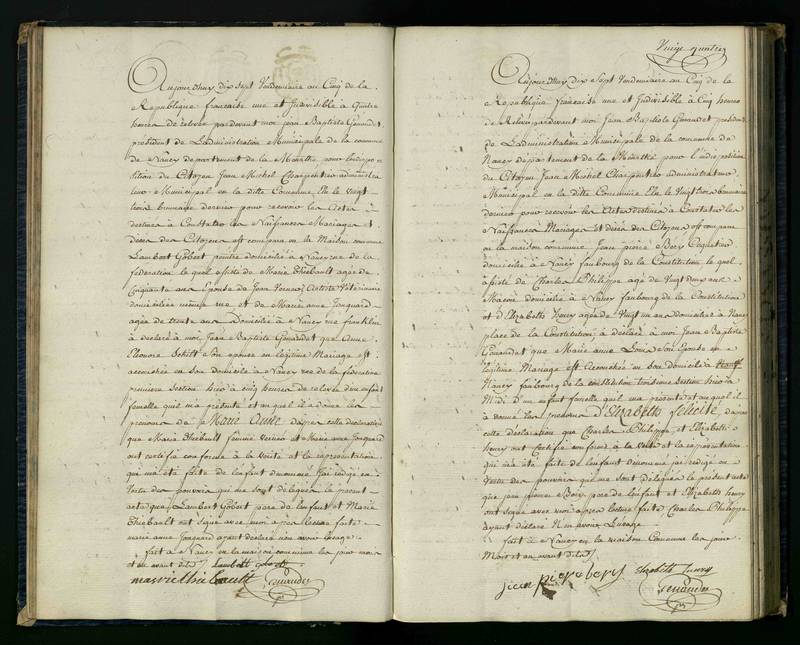 Aujourd'huy dix sept Vendemiaire an Cinq de la
Republique francaise une et Indivisible à Quatre
heures de relevée pardevant moi jean Baptiste Genaudet
président de L'administration Municipale de la commune
de Nancy departement de la Meurthe pour
du Citoyen Jean Michel Charpentier administra
teur Municipal en la ditte Commune Elu le vingt
trois brumaire dernier pour recevoir les Actes
destinés à Constater les Naissances Mariages et
décès des Citoyens est comparu en la Maison commune
Lambert Gobert peintre domicilié à Nancy rue de la
fédération lequel assisté de Marie Thiebault agée de
Cinquante ans Epouse de Jean Vernier Artiste Vétérinaire
domiciliée même rue et de Marie anne Jonquard
agée de trente ans Domiciliée à Nancy rue franklin
à déclaré à moi Jean Baptiste Genaudet que Anne
Eleonore Schitt son epouse en legitime Mariage est
accouchée en son Domicile à Nancy rue de la fédération
premiere Section hier à cinq heures de relevée d'un enfant
femelle quil ma présenté et auquel il à donné les
prenoms de Marie Anne d'apres cette declaration
que Marie Thiebault femme Vernier et Marie anne Jonquard
ont certifié conforme à la vérité et la représentation
qui m'a été faite de l'enfant dénommé J'ai rédigé en
Vertu des pouvoirs qui me sont délégués le présent
acte que Lambert Gobert pere de l'enfant et Marie
Thiebault ont signé avec moi apres lecture faite
marie anne Jonquard ayant déclaré non avoir l'usage
fait à Nancy en la maison commune les jour mois
et an avant dits Lambert gobert
marie thiebault
Genaudet
Vingt quatre
Aujourd'huy dix Sept Vendemiaire an Cinq de la
Republique francaise une et Indivisible à Cinq heures
de Relevée pardevant moi Jean Baptiste Genaudet président
de L'administration Municipale de la commune de
Nancy departement de la Meurthe pour l'indisposition
du Citoyen Jean Michel Charpentier administrateur
Municipal en la ditte Commune Elu le Vingt trois brumaire
dernier pour recevoir les Actes destinés à Constater les
Naissances Mariages et décès des Citoyens est comparu
en la maison commune Jean pierre Bery
domicilié à Nancy faubourg de la Constitution le quel
assisté de Charles Philippe agé de Vingt deux ans
Macon domicilié à Nancy faubourg de la Constitution
et d'Elizabeth henry agée de Vingt un ans domiciliée à Nancy
place de la Constitution à déclaré à moi Jean Baptiste
Genaudet que Marie anne Louis son Epouse en
légitime Mariage est Accouchée en son domicile à
Nancy faubourg de la constitution troisieme Section hier à
Midi d'un enfant femelle quil ma présenté et auquel il
à donné les prenoms d'Elizabeth félicité, d'apres
cette déclaration que Charles Philippe et Elizabeth
henry ont certifié conforme à la vérité et la représentation
qui m'a été faite de l'enfant dénommé jai rédigé en
Vertu des pouvoirs qui me sont délégués le present acte
que jean pierre Bery pere de l'enfant et Elizabeth henry
ont signé avec moi apres lecture faite Charles Philippe
ayant déclaré N'en avoir L'usage.
fait à Nancy en la maison Commune les jour
Mois et an avant dits
jean piere bery
Elizabeth henry
Genaudet